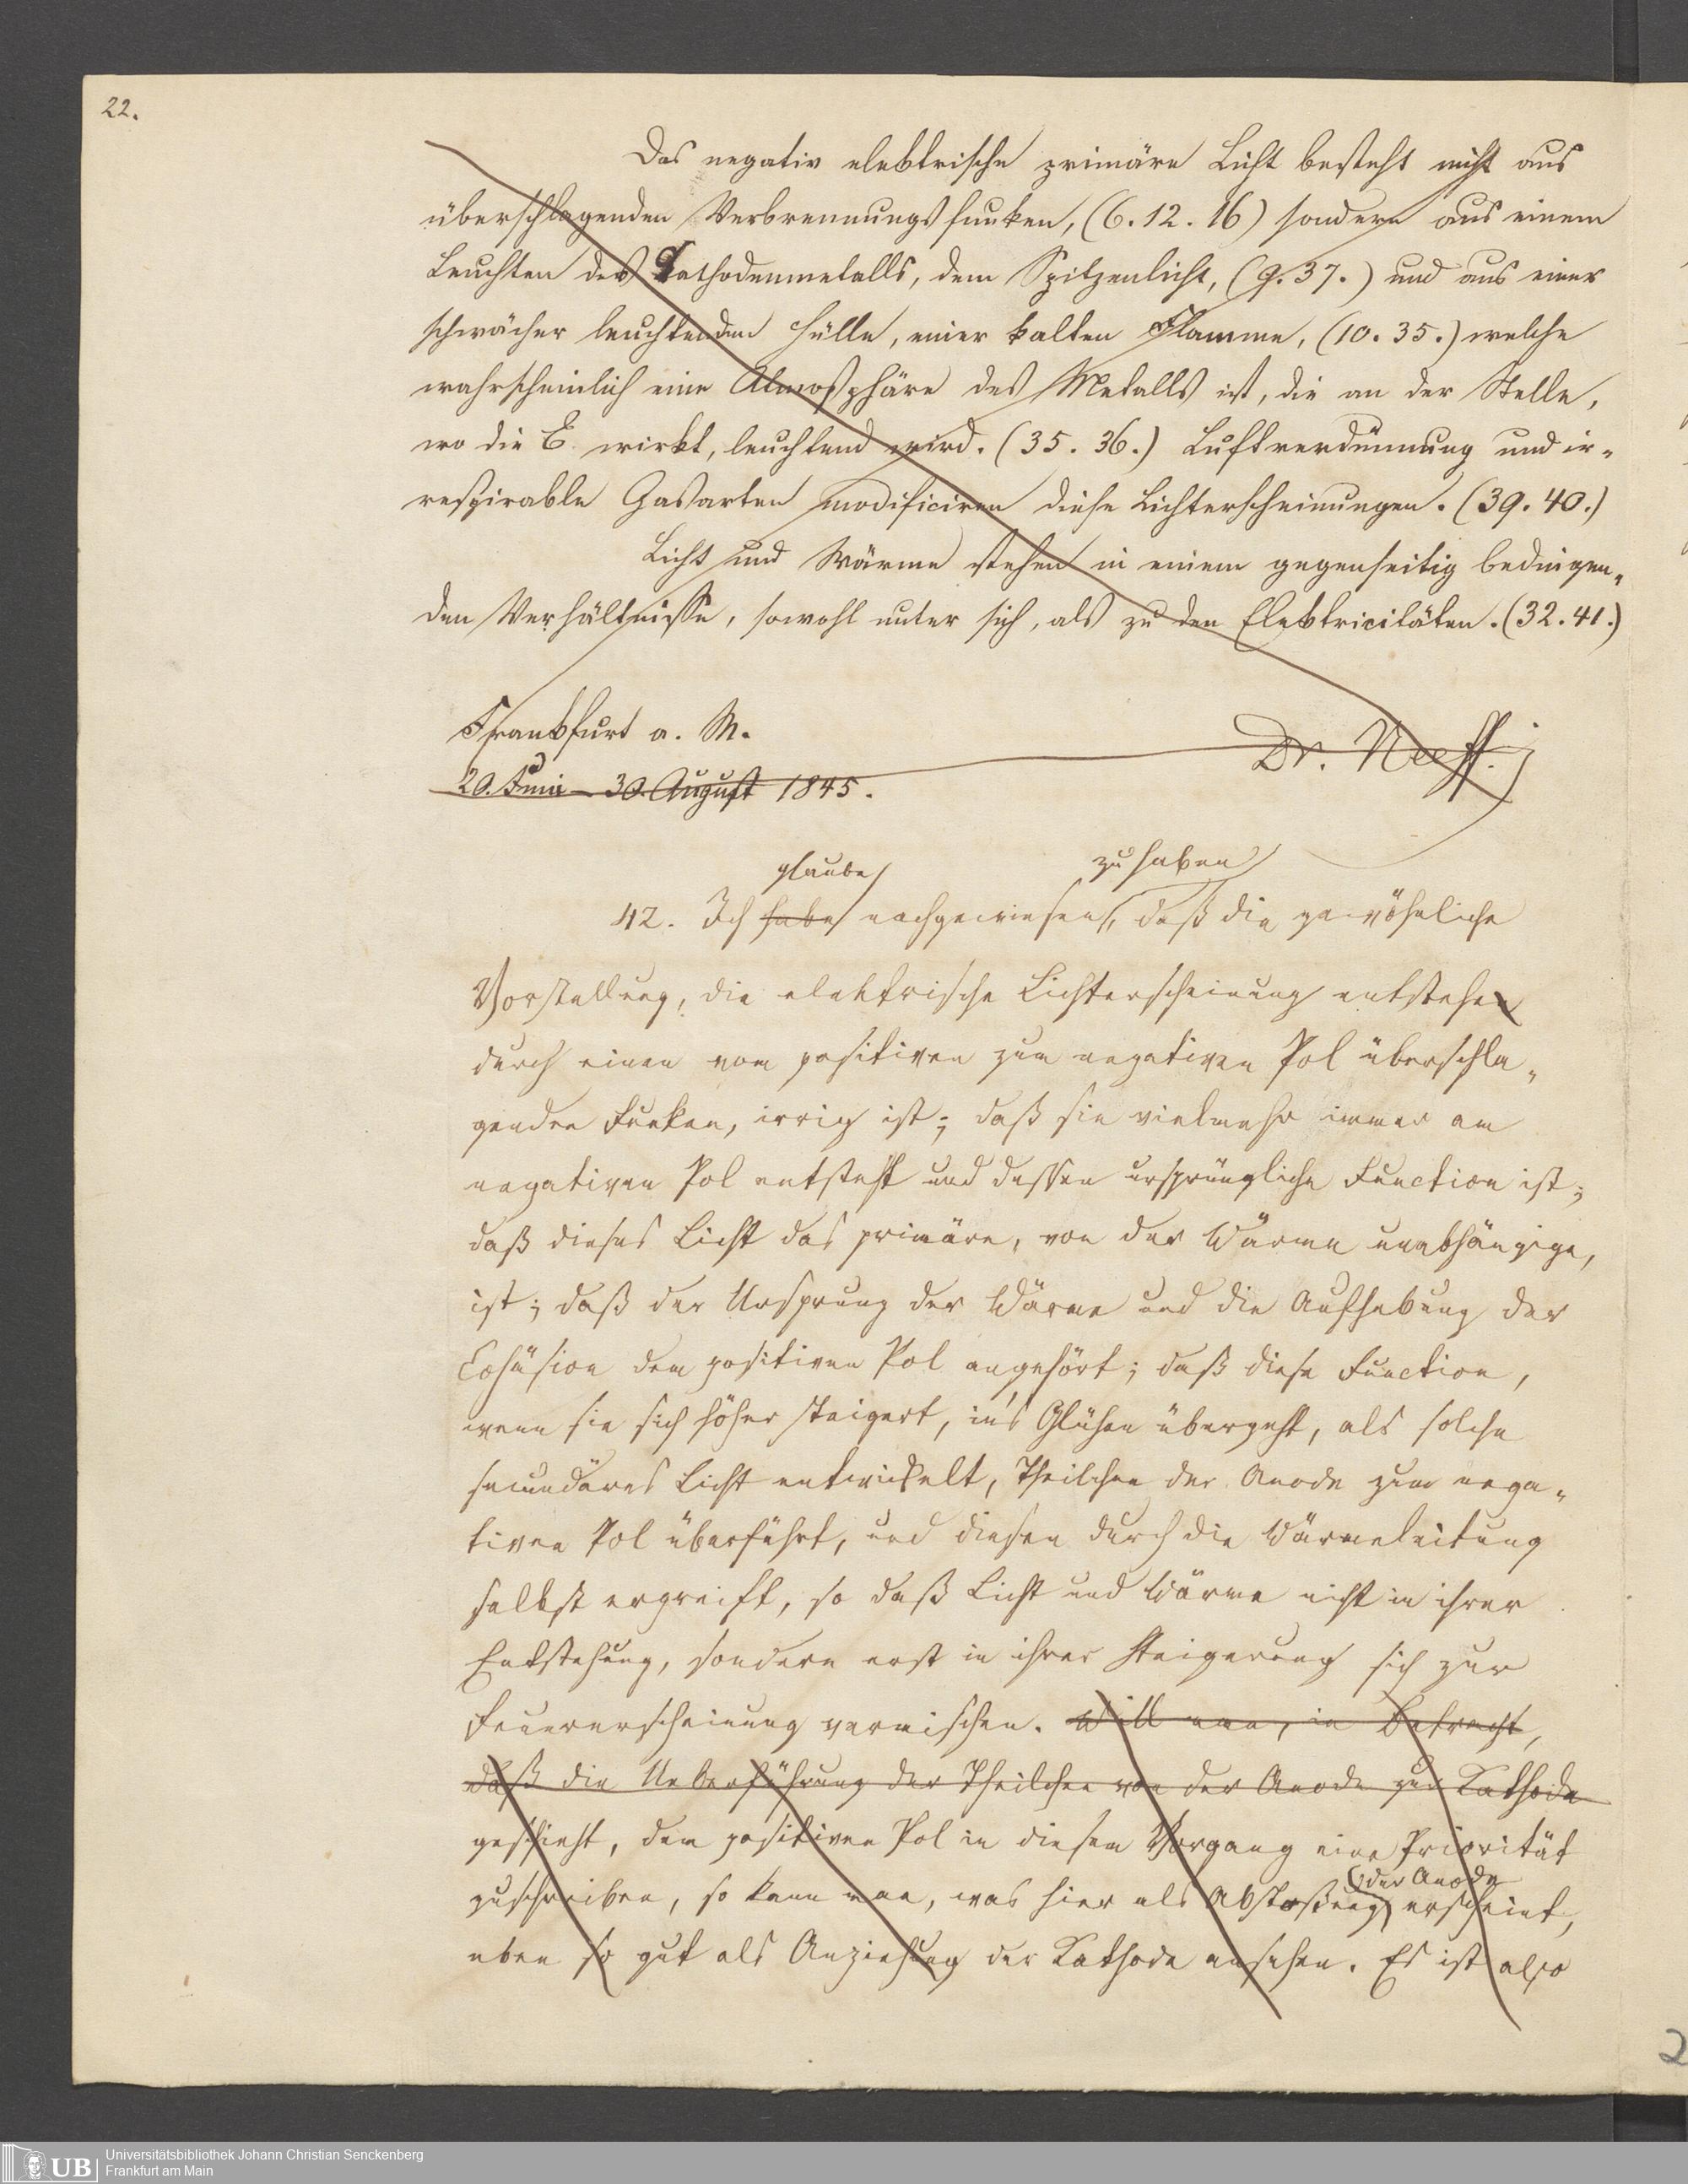 22.
Das negativ elektrische primäre Licht besteht nicht aus
überschlagenden Verbrennungsfunken, (6. 12. 16) sondern aus einem
Leuchten des Cathodenmetalls, dem Spitzenlicht, (9. 37.) und aus einer
schwächer leuchtenden Hülle, einer kalten Flamme, (10. 35.) welche
wahrscheinlich eine Atmosphäre des Metalls ist, die an der Stelle,
wo die E. wirkt, leuchtend wird. (35. 36.) Luftverdünnung und ir-
respirable Gasarten modificiren diese Lichterscheinungen. (39. 40.)
Licht und Wärme stehen in einem gegenseitig bedingen-
den Verhältnisse, sowohl unter sich, als zu den Elektricitäten. (32. 41.)
Frankfurt a. M.
Dr. Neeff.
20. Juni – 30. August 1845.
glaube zu haben
42. Ich habe nachgewiesen, daß die gewöhnliche
Vorstellung, die elektrische Lichterscheinung entstehe
durch einen vom positiven zum negativen Pol überschla-
genden Funken, irrig ist; daß sie vielmehr immer am
negativen Pol entsteht und dessen ursprüngliche Function ist;
daß dieses Licht das primäre, von der Wärme unabhängige,
ist; daß der Ursprung der Wärme und die Aufhebung der
Cohäsion dem positiven Pol angehört; daß diese Function,
wenn sie sich höher steigert, in's Glühen übergeht, als solche
secundäres Licht entwickelt, Theilchen der Anode zum nega-
tiven Pol überführt, und diesen durch die Wärmeleitung
selbst ergreift, so daß Licht und Wärme nicht in ihrer
Entstehung, sondern erst in ihrer Steigerung sich zur
Feuererscheinung vermischen. Will man, in Betracht,
daß die Ueberführung der Theilchen von der Anode zur Kathode
geschieht, dem positiven Pol in diesem Vorgang eine Priorität
der Anode
zuschreiben, so kann man, was hier als Abstoßung erscheint,
eben so gut als Anziehung der Kathode ansehen. Es ist also
2
UB
Universitätsbibliothek Johann Christian Senckenberg
Frankfurt am Main